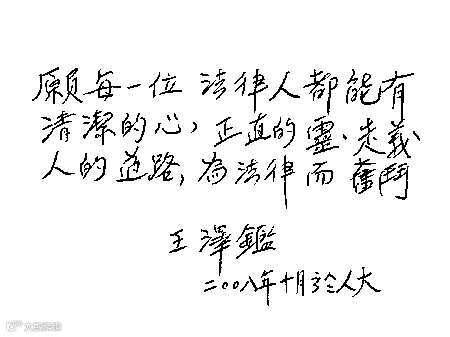 願每一位 法律人都能有
清潔的心，正直的靈、走義
人的道路，為法律而奮鬥
王澤鑑
二〇〇八年十月于人大